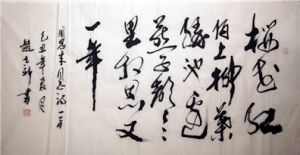 樱花红
陌上柳葉
绿池边
燕子声声
里相思又
一年
周恩来同志诗一首
己丑年夏月
书